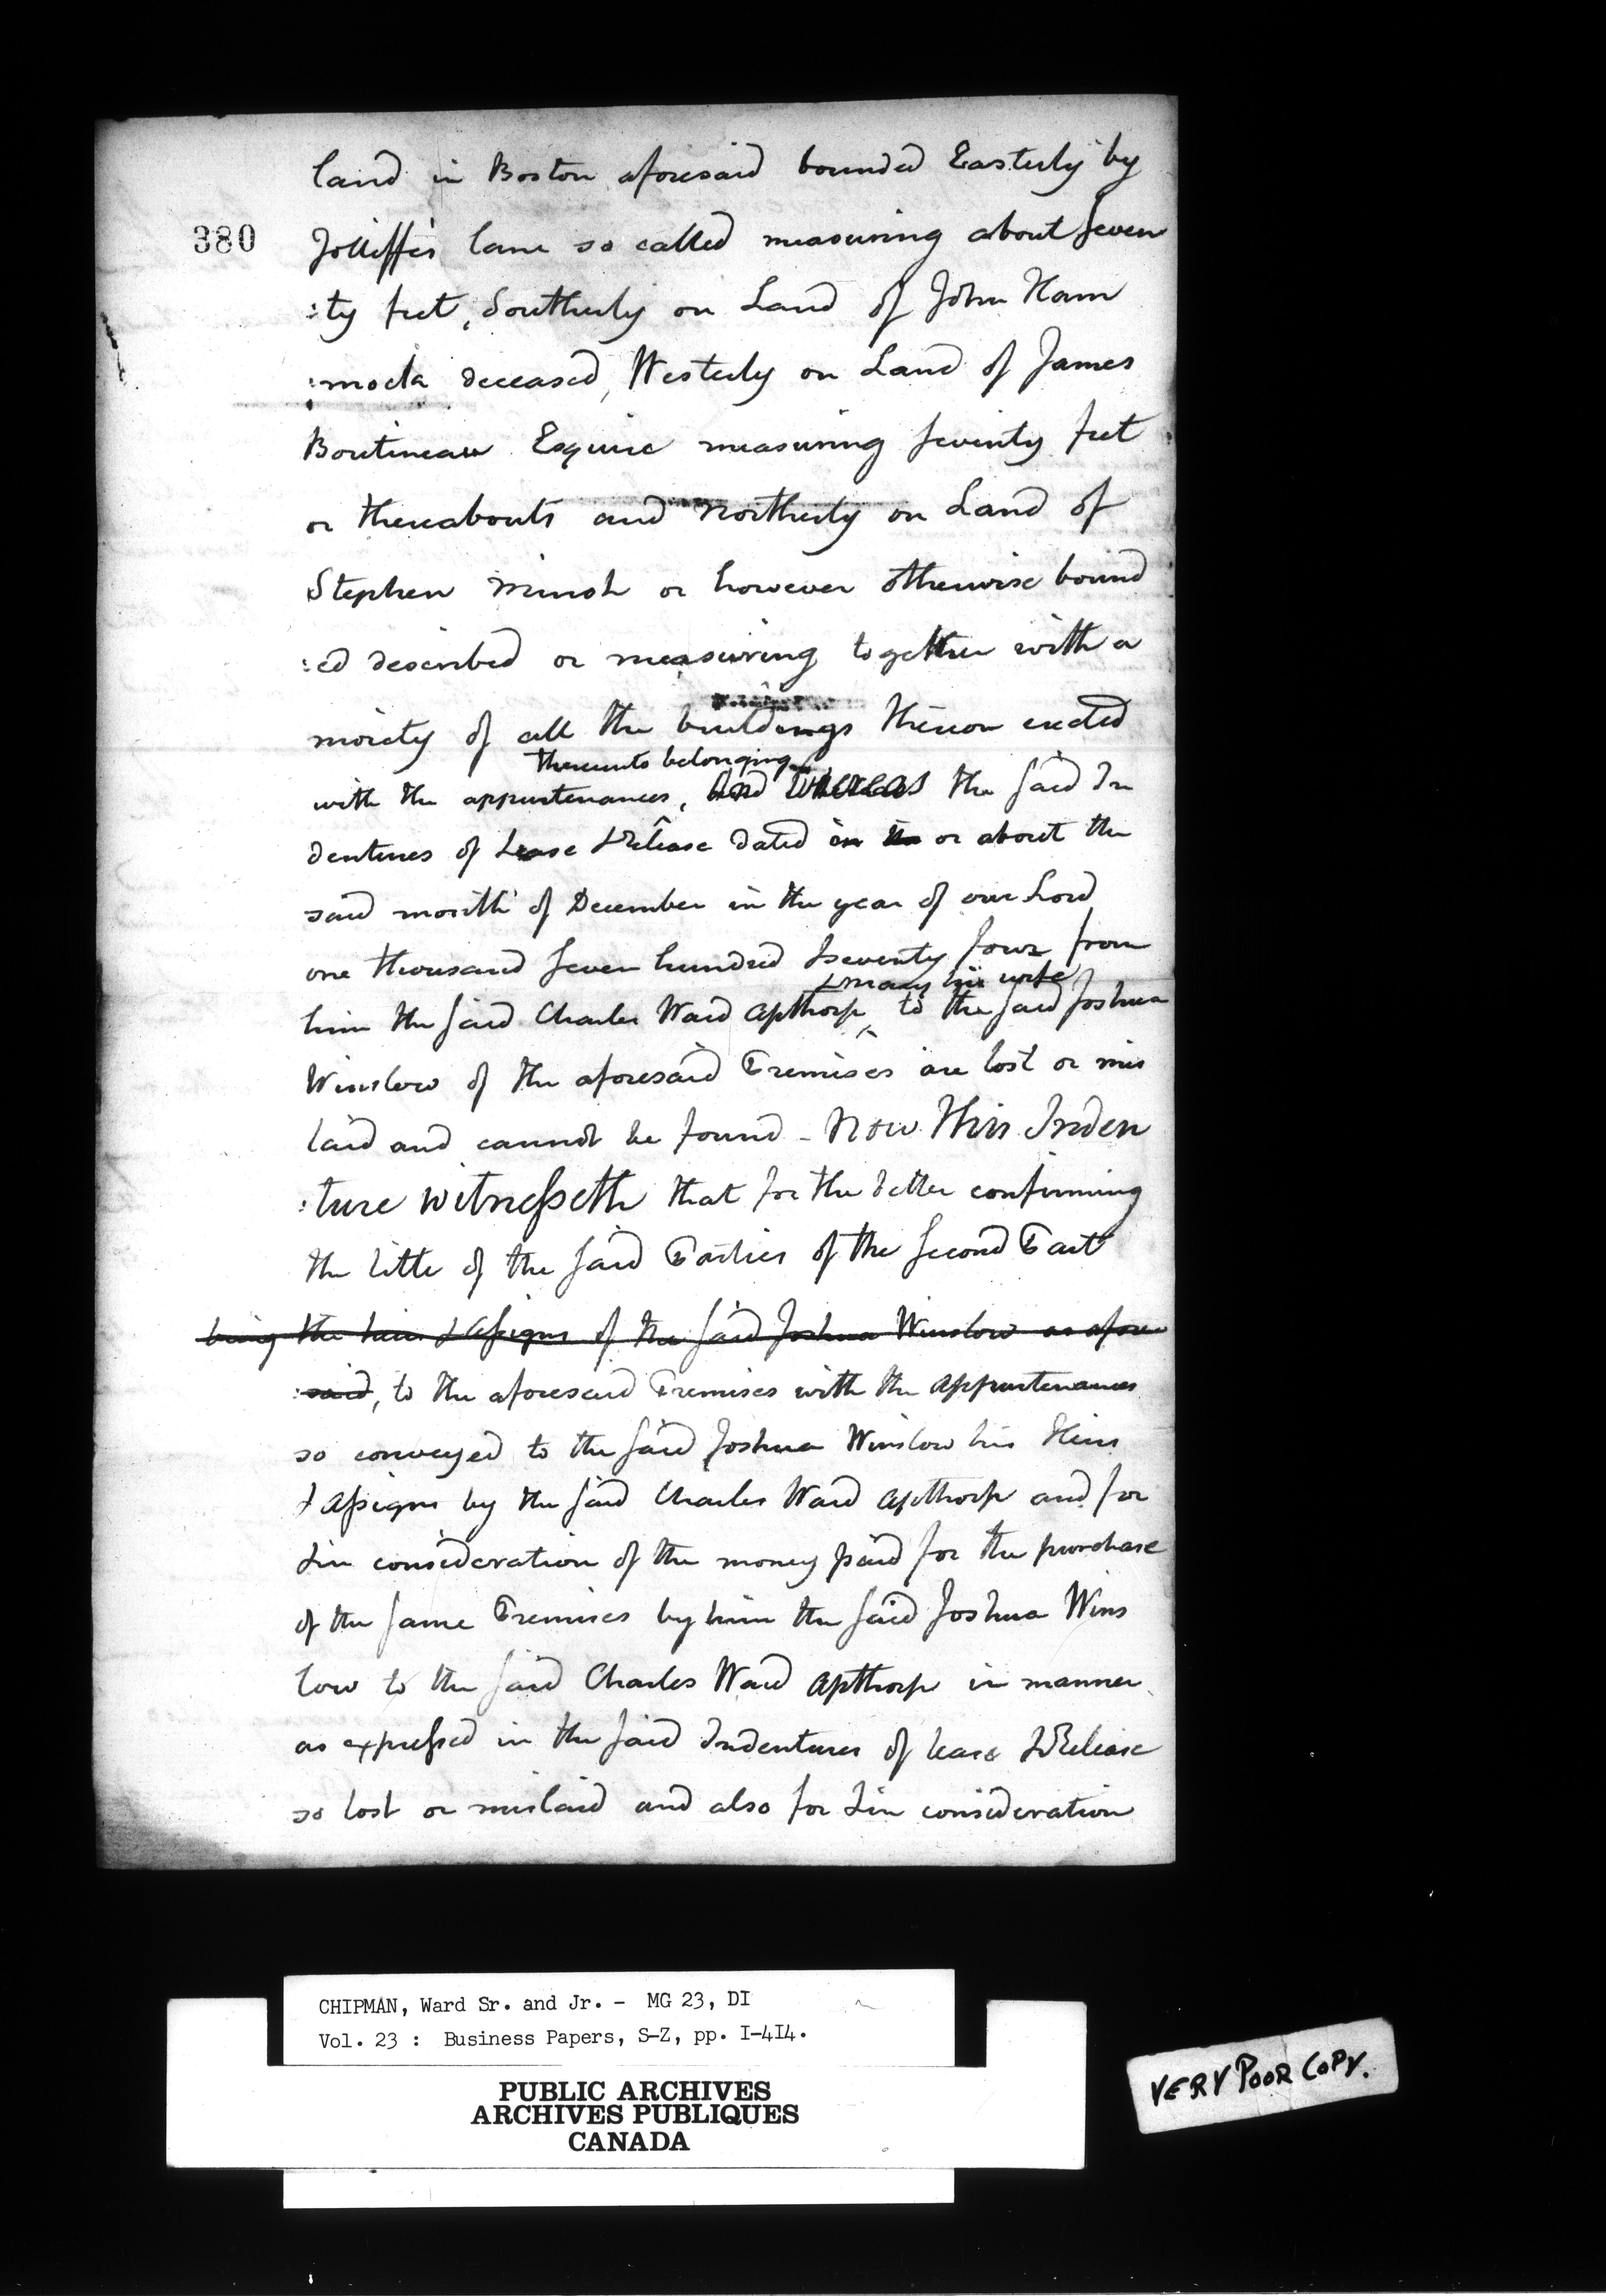 land in Boston aforesaid bounded Easterly by
380
Jolliffe's lane so called measuring about seven
:ty feet, Southerly on Land of John Ham
:mock deceased, Westerly on Land of James
Boutineau Esquire measuring seventy feet
or thereabouts and Northerly on Land of
Stephen Minot or however otherwise bound
:ed described or measuring together with a
moiety of all the buildings thereon erected
thereunto belonging
with the appurtenances, And Whereas the said In
dentures of Lease & Release dated in or about the
said month of December in the year of our Lord
one thousand seven hundred & seventy four from
& Mary his wife
him the said Charles Ward Apthorp to the said Joshua
Winslow of the aforesaid Premises are lost or mis
laid and cannot be found - Now This Inden
:ture Witnesseth that for the better confirming
the title of the said Parties of the second Part
being the heirs & Assigns of the said Joshua Winslow as afore
:said, to the aforesaid Premises with the Appurtenances
so conveyed to the said Joshua Winslow his Heirs
& Assigns by the said Charles Ward Apthorp and for
& in consideration of the money paid for the purchase
of the same Premises by him the said Joshua Wins
low to the said Charles Ward Apthorp in manner
as expressed in the said Indentures of lease & Release
so lost or mislaid and also for & in consideration
CHIPMAN, Ward Sr. and Jr. - MG 23, DI
Vol. 23 : Business Papers, S-Z, pp. I-4I4.
PUBLIC ARCHIVES
ARCHIVES PUBLIQUES
CANADA
VERY POOR COPY.